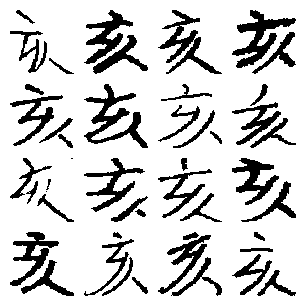 亥亥亥亥
亥亥亥亥
亥亥亥亥
亥亥亥亥